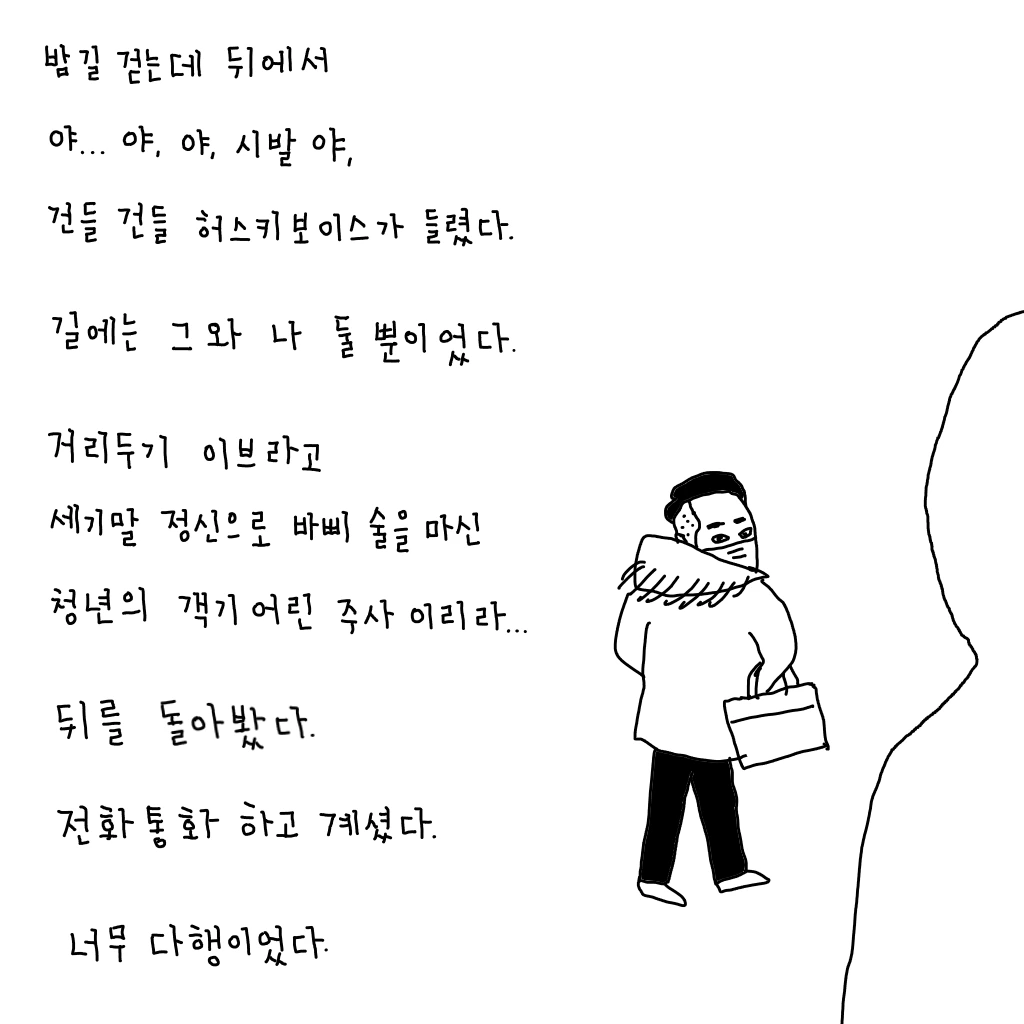 밤길 걷는데 뒤에서
야... 야, 야, 시발 야,
건들 건들 허스키보이스가 들렸다.
길에는 그와 나 둘 뿐이었다.
거리두기 이브라고
세기말 정신으로 바삐 술을 마신
청년의 객기 어린 주사 이리라...
뒤를 돌아봤다.
전화통화 하고 계셨다.
너무 다행이었다.